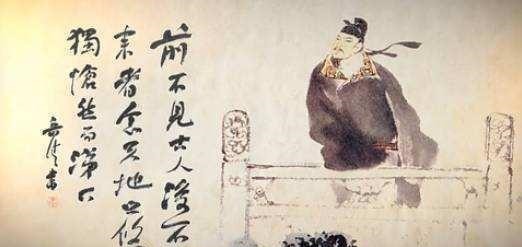 前不見古人後不
来者念天地之悠
獨愴然而涕下